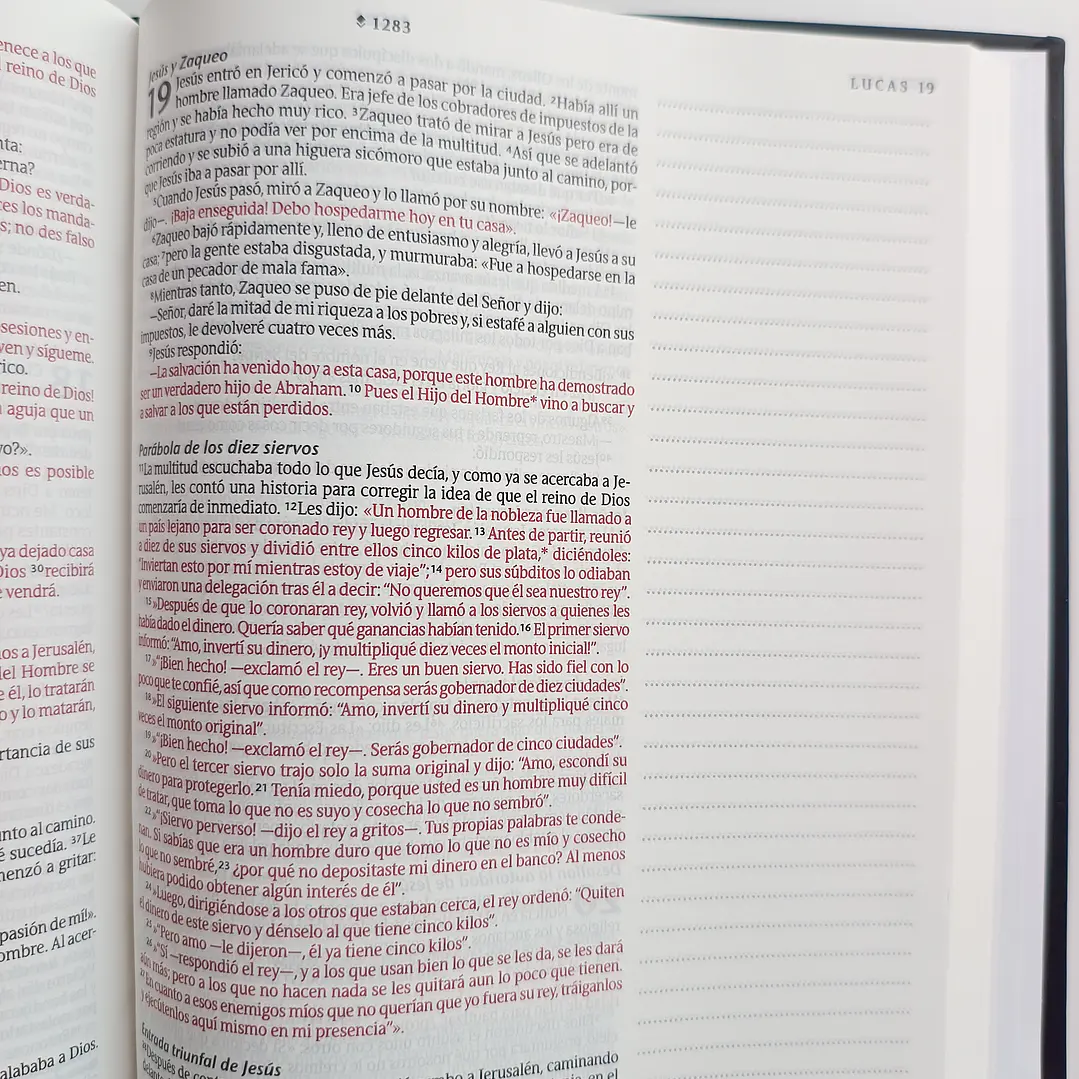 enece a los que
reino de Dios
nta:
erna?
Dios es verda-
ces los manda-
s; no des falso
en.
sesiones y en-
ven y sígueme.
rico.
reino de Dios!
aguja que un
vo?».
ios es posible
ya dejado casa
Dios ³⁰recibirá
vendrá.
os a Jerusalén,
del Hombre se
él, lo tratarán
o y lo matarán,
rtancia de sus
nto al camino.
é sucedía. ³⁷Le
menzó a gritar:
pasión de mí!».
ombre. Al acer-
alababa a Dios.
1283
LUCAS 19
Jesús y Zaqueo
19 Jesús entró en Jericó y comenzó a pasar por la ciudad. ²Había allí un
hombre llamado Zaqueo. Era jefe de los cobradores de impuestos de la
región y se había hecho muy rico. ³Zaqueo trató de mirar a Jesús pero era de
poca estatura y no podía ver por encima de la multitud. ⁴Así que se adelantó
corriendo y se subió a una higuera sicómoro que estaba junto al camino, por-
que Jesús iba a pasar por allí.
⁵Cuando Jesús pasó, miró a Zaqueo y lo llamó por su nombre: «¡Zaqueo!—le
dijo—. ¡Baja enseguida! Debo hospedarme hoy en tu casa».
⁶Zaqueo bajó rápidamente y, lleno de entusiasmo y alegría, llevó a Jesús a su
casa; ⁷pero la gente estaba disgustada, y murmuraba: «Fue a hospedarse en la
casa de un pecador de mala fama».
⁸Mientras tanto, Zaqueo se puso de pie delante del Señor y dijo:
—Señor, daré la mitad de mi riqueza a los pobres y, si estafé a alguien con sus
impuestos, le devolveré cuatro veces más.
⁹Jesús respondió:
—La salvación ha venido hoy a esta casa, porque este hombre ha demostrado
ser un verdadero hijo de Abraham. ¹⁰ Pues el Hijo del Hombre* vino a buscar y
a salvar a los que están perdidos.
Parábola de los diez siervos
¹¹La multitud escuchaba todo lo que Jesús decía, y como ya se acercaba a Je-
rusalén, les contó una historia para corregir la idea de que el reino de Dios
comenzaría de inmediato. ¹²Les dijo: «Un hombre de la nobleza fue llamado a
un país lejano para ser coronado rey y luego regresar. ¹³ Antes de partir, reunió
a diez de sus siervos y dividió entre ellos cinco kilos de plata,* diciéndoles:
“Inviertan esto por mí mientras estoy de viaje”; ¹⁴ pero sus súbditos lo odiaban
y enviaron una delegación tras él a decir: “No queremos que él sea nuestro rey”.
¹⁵ »Después de que lo coronaran rey, volvió y llamó a los siervos a quienes les
había dado el dinero. Quería saber qué ganancias habían tenido. ¹⁶ El primer siervo
informó: “Amo, invertí su dinero, ¡y multipliqué diez veces el monto inicial!”.
¹⁷ »“¡Bien hecho! —exclamó el rey—. Eres un buen siervo. Has sido fiel con lo
poco que te confié, así que como recompensa serás gobernador de diez ciudades”.
¹⁸ »El siguiente siervo informó: “Amo, invertí su dinero y multipliqué cinco
veces el monto original”.
¹⁹ »“¡Bien hecho! —exclamó el rey—. Serás gobernador de cinco ciudades”.
²⁰ »Pero el tercer siervo trajo solo la suma original y dijo: “Amo, escondí su
dinero para protegerlo. ²¹ Tenía miedo, porque usted es un hombre muy difícil
de tratar, que toma lo que no es suyo y cosecha lo que no sembró”.
²² »“¡Siervo perverso! —dijo el rey a gritos—. Tus propias palabras te conde-
nan. Si sabías que era un hombre duro que tomo lo que no es mío y cosecho
lo que no sembré, ²³ ¿por qué no depositaste mi dinero en el banco? Al menos
hubiera podido obtener algún interés de él”.
²⁴ »Luego, dirigiéndose a los otros que estaban cerca, el rey ordenó: “Quiten
el dinero de este siervo y dénselo al que tiene cinco kilos”.
²⁵ »“Pero amo —le dijeron—, él ya tiene cinco kilos”.
²⁶ »“Sí —respondió el rey—, y a los que usan bien lo que se les da, se les dará
aún más; pero a los que no hacen nada se les quitará aun lo poco que tienen.
²⁷ En cuanto a esos enemigos míos que no querían que yo fuera su rey, tráiganlos
y ejecútenlos aquí mismo en mi presencia”».
Entrada triunfal de Jesús
²⁸Después de a Jerusalén, caminando
en el